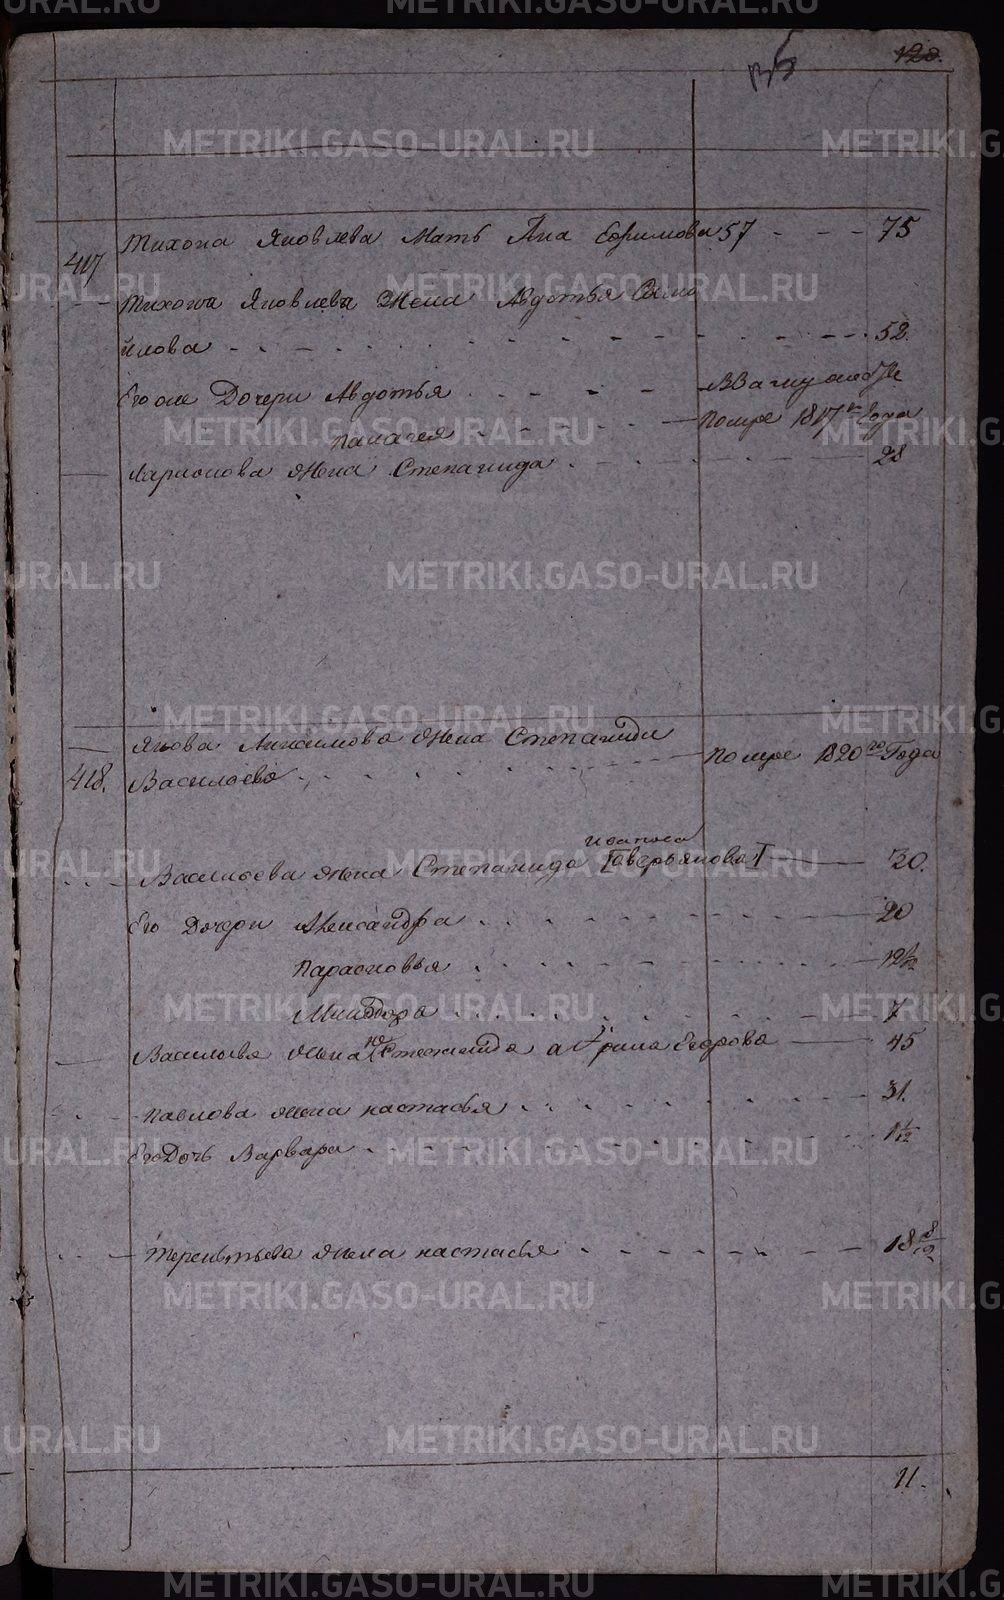 120.
417
Тихона Яковлева Мать Анна Ефимова 57 75
Тихона Яковлева Жена Авдотья Само
йлова 52
Его же Дочери Авдотья
Палагея Помре 1817 Года
Ларионова Жена Степанида 28
Якова жена Степанида
418. Васильева Помре 1820 го Года
Иванова
Васильева жена Степанида [Аверьянова] 30.
Его Дочери Александра 20
Парасковья
7
Васильева жена Степанида а Ирина Егорова 45
Павлова жена настасья 31.
Его Дочь Варвара 1
Терентьева жена настасья 18
11.
METRIKI.GASO-URAL.RU